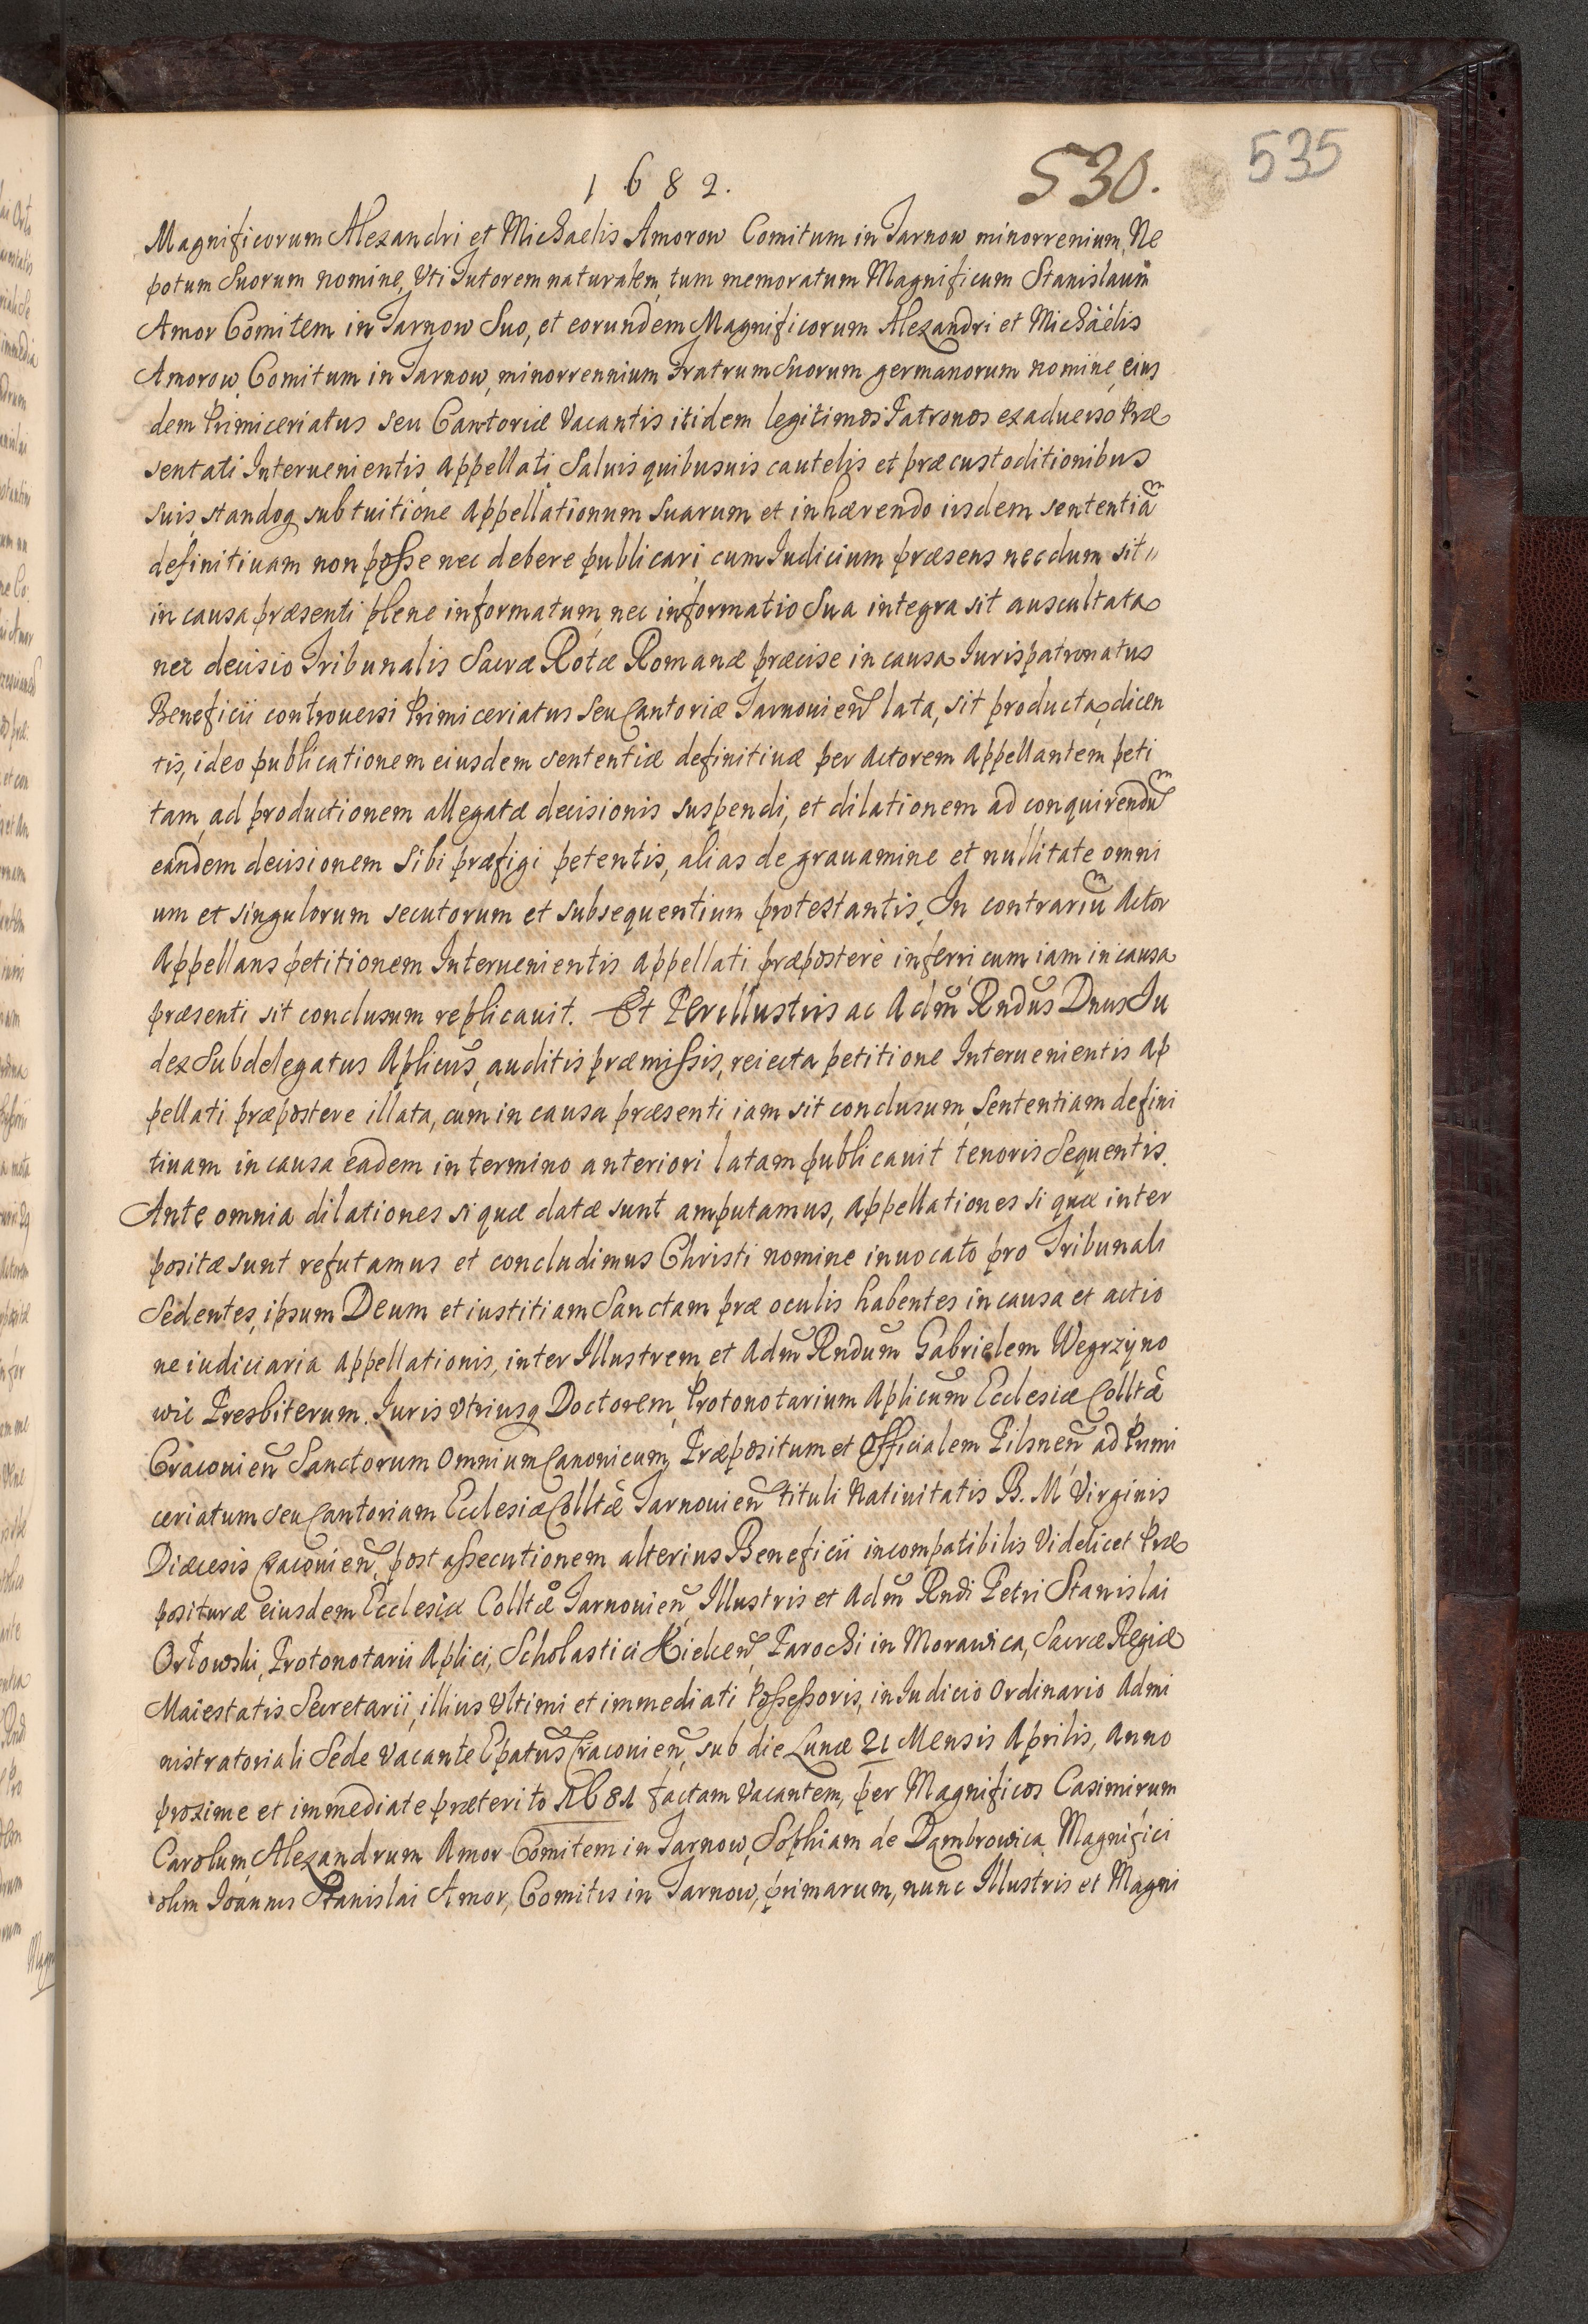 1682.
530.
535
Magnificorum Alexandri et Michaelis Amorow Comitum in Tarnow minorrenium, Ne
potum Suorum nomine, Vti Tutorem naturalem, tum memoratum Magnificum Stanislaum̃
Amor Comitem in Tarnow Suo, et eorundem Magnificorum Alexandri et Michäelis
Amorow Comitum in Tarnow, minorrennium Fratrum Suorum germanorum nomine, eius
dem Primiceriatus seu Cantoriæ Vacantis itidem legitimos Patronos ex aduerso Præ
sentati Interuenientis, Appellati, Saluis quibusuis cautelis et præcustoditionibus
suis standoq, sub tuitione Appellationum Suarum et inhærendo iisdem sententiã
definitiuam non posse nec debere publicari, cum Iudicium præsens necdum sit //
in causa præsenti plene informatum, nec informatio Sua integra sit auscultata
nec decisio Tribunalis Sacræ Rotæ Romanæ præcise in causa Iurispatronatus
Beneficii controuersi Primiceriatus Seu Cantoriæ Tarnouien̄ lata, sit producta, dicen
tis, ideo publicationem eiusdem sententiæ definitiuæ per Actorem Appellantem peti
tam, ad productionem allegatæ decisionis suspendi, et dilationem ad conquirendũ
eandem decisionem sibi præfigi petentis, alias de grauamine et nullitate omni
um et singulorum secutorum et subsequentium protestantis. In contrariũ Actor
Appellans petitionem Interuenientis Appellati, præposterè inferri, cum iam in causa
præsenti sit conclusum replicauit. Et Perillustris ac Adm̃ Rndus Dnus Iu
dex Subdelegatus Aplicus, auditis præmissis, reiecta petitione Interuenientis Ap
pellati præpostere illata, cum in causa præsenti iam sit conclusum, Sententiam defini
tiuam in causa eadem in termino anteriori latam publicauit tenoris Sequentis.
Ante omnia dilationes si quæ datæ sunt amputamus, Appellationes si quæ inter
positæ sunt refutamus et concludimus Christi nomine inuocato pro Tribunali
Sedentes, ipsum Deum et iustitiam Sanctam præ oculis habentes in causa et actio
ne iudiciaria Appellationis, inter Illustrem, et Adm̃ Rndum Gabrielem Wegrzyno
wic Presbiterum. Iuris Vtriusq Doctorem, Protonotarium Aplicum Ecclesiæ Colltæ
Cracouien̄ Sanctorum Omnium Canonicum, Præpositum et Officialem Pilsnen̄ ad Primi
ceriatum seu Cantoriam Ecclesiæ Colltæ Tarnouien̄ tituli Natiuitatis B. M. Virginis
Diæcesis Cracouien̄, post assecutionem alterius Beneficii incompatibilis Videlicet Præ
posituræ eiusdem Ecclesiæ Colltæ Tarnouien̄, Illustris et Adm̃ Rndi Petri Stanislai
Orłowski, Protonotarii Aplici, Scholastici Kielcen̄, Parochi in Morawica, Sacræ Regiæ
Maiestatis Secretarii, illius Vltimi et immediati Possessoris, in Iudicio Ordinario Admi
nistratoriali Sede Vacante Epatus Cracouien̄, sub die Lunæ 21 Mensis Aprilis, Anno
proxime et immediate præterito 1681 factam Vacantem, per Magnificos Casimirum
Carolum, Alexandrum Amor Comitem in Tarnow, Sophiam de Dąmbrowica Magnifici
olim Ioannis Stanislai Amor, Comitis in Tarnow, primarum, nunc Illustris et Magni